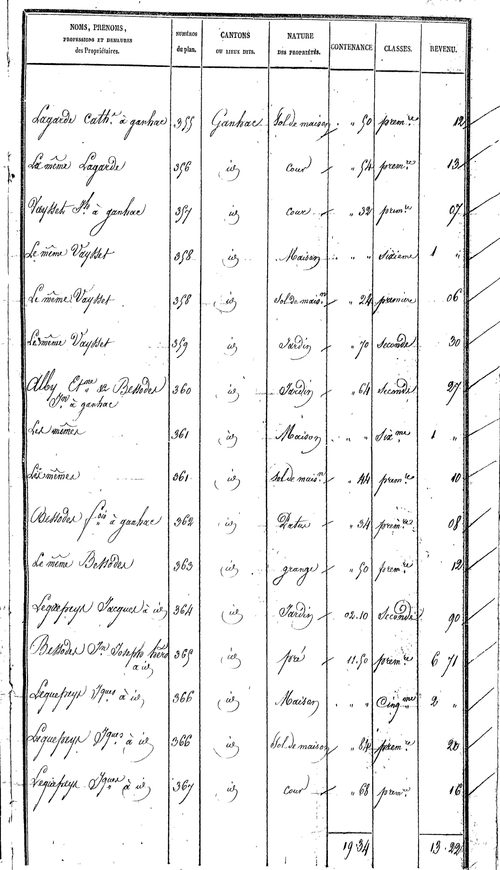 NOMS, PRÉNOMS, PROFESSIONS ET DEMEURES des Propriétaires. NUMÉROS du plan. CANTONS OU LIEUX DITS. NATURE DES PROPRIÉTÉS. CONTENANCE CLASSES. REVENU.
Lagarde Cath.e à ganhac 355 Ganhac Sol de maison " 50 prem.re 12
La même Lagarde 356 id cour " 54 prem.re 13
Vaysset à ganhac 357 id cour " 32 prem.re 07
Le même Vaysset 358 id Maison " " sixieme 1 "
Le même Vaysset 358 id Sol de mais.n " 24 premiere 06
Le même Vaysset 359 id Jardin " 70 Seconde 30
Alby Et.me & Bessodes 360 id Jardin " 64 Seconde 27
J.n à ganhac
Les mêmes 361 id Maison " " Six.me 1 "
Les mêmes 361 id Sol de mais.n " 44 prem.re 10
Bessodes f.ois à ganhac 362 id Patus " 34 prem.re 08
Le même Bessodes 363 id grange " 50 prem.re 12
Lequepeys Jacques à id 364 id Jardin 02.10 Seconde 90
Bessodes J.n Joseph hérs 365 id pré 11.50 prem.re 6 71
à id
Lequepeys J.ques à id 366 id Maison " " Cinq.me 2 "
Lequepeys J.ques à id 366 id Sol de maison " 84 prem.re 20
Lequepeys J.ques à id 367 id cour " 68 prem.re 16
19.34 13.22